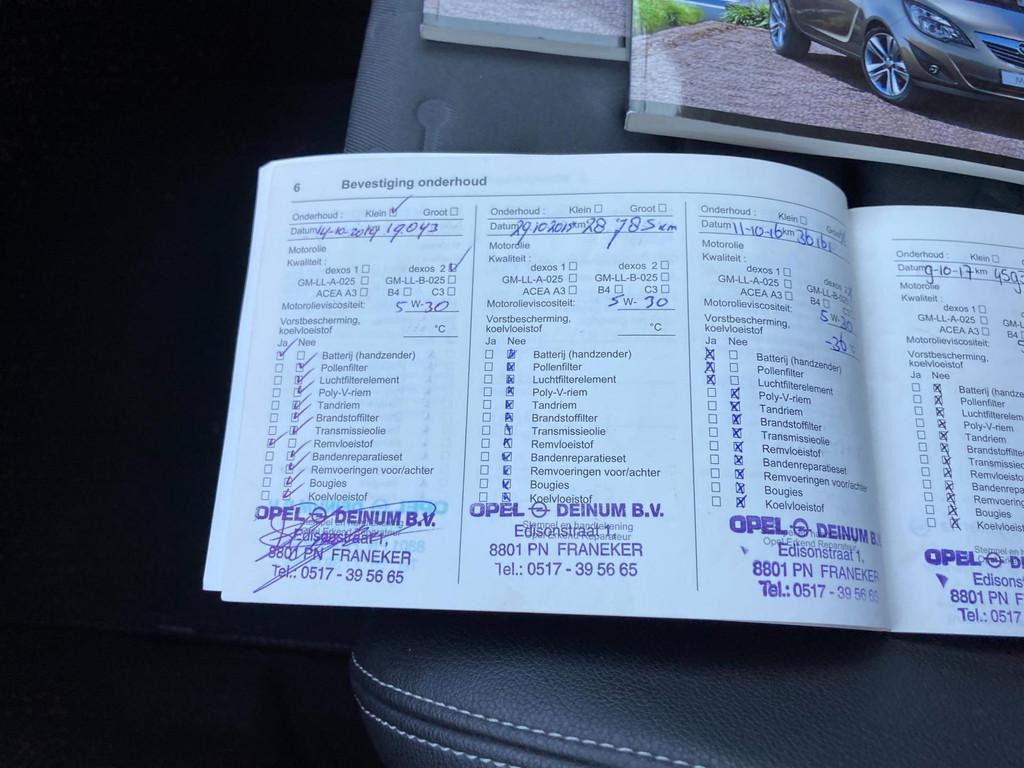 6 Bevestiging onderhoud
Onderhoud : Klein Groot
Datum 14-10-2014 19043
Motorolie
Kwaliteit :
dexos 1 dexos 2
GM-LL-A-025 GM-LL-B-025
ACEA A3 B4 C3
Motorolieviscositeit: 5 W-30
Vorstbescherming,
koelvloeistof °C
Ja Nee
Batterij (handzender)
Pollenfilter
Luchtfilterelement
Poly-V-riem
Tandriem
Brandstoffilter
Transmissieolie
Remvloeistof
Bandenreparatieset
Remvoeringen voor/achter
Bougies
Koelvloeistof
OPEL DEINUM B.V.
Edisonstraat 1,
8801 PN FRANEKER
Tel.: 0517 - 39 56 65
Onderhoud : Klein Groot
Datum 29.10 2015 km 28 785 km
Motorolie
Kwaliteit :
dexos 1 dexos 2
GM-LL-A-025 GM-LL-B-025
ACEA A3 B4 C3
Motorolieviscositeit: 5 W- 30
Vorstbescherming,
koelvloeistof °C
Ja Nee
Batterij (handzender)
Pollenfilter
Luchtfilterelement
Poly-V-riem
Tandriem
Brandstoffilter
Transmissieolie
Remvloeistof
Bandenreparatieset
Remvoeringen voor/achter
Bougies
Koelvloeistof
Stempel en handtekening
Opel Erkend Reparateur
OPEL DEINUM B.V.
Edisonstraat 1,
8801 PN FRANEKER
Tel.: 0517 - 39 56 65
Onderhoud : Klein Groot
Datum 11-10-16 km 36161
Motorolie
Kwaliteit :
dexos 1 dexos
GM-LL-A-025 GM-LL-B-025
ACEA A3 B4 C3
Motorolieviscositeit: 5 W-30
Vorstbescherming,
koelvloeistof -36 °C
Ja Nee
Batterij (handzender)
Pollenfilter
Luchtfilterelement
Poly-V-riem
Tandriem
Brandstoffilter
Transmissieolie
Remvloeistof
Bandenreparatieset
Remvoeringen voor/achter
Bougies
Koelvloeistof
Opel Erkend Reparateur
OPEL DEINUM B.
Edisonstraat 1,
8801 PN FRANEKER
Tel.: 0517 - 39 56 65
Onderhoud : Klein
Datum 9-10-17 km 459
Motorolie
Kwaliteit :
dexos 1
GM-LL-A-025 GM-L
ACEA A3 B4
Motorolieviscositeit:
Vorstbescherming,
koelvloeistof
Ja Nee
Batterij (handze
Pollenfilter
Luchtfilterelem
Poly-V-riem
Tandriem
Brandstoffilte
Transmissie
Remvloeisto
Bandenrepa
Remvoering
Bougies
Koelvloeist
Stempel en
OPEL DE
Edisons
8801 PN F
Tel.: 0517